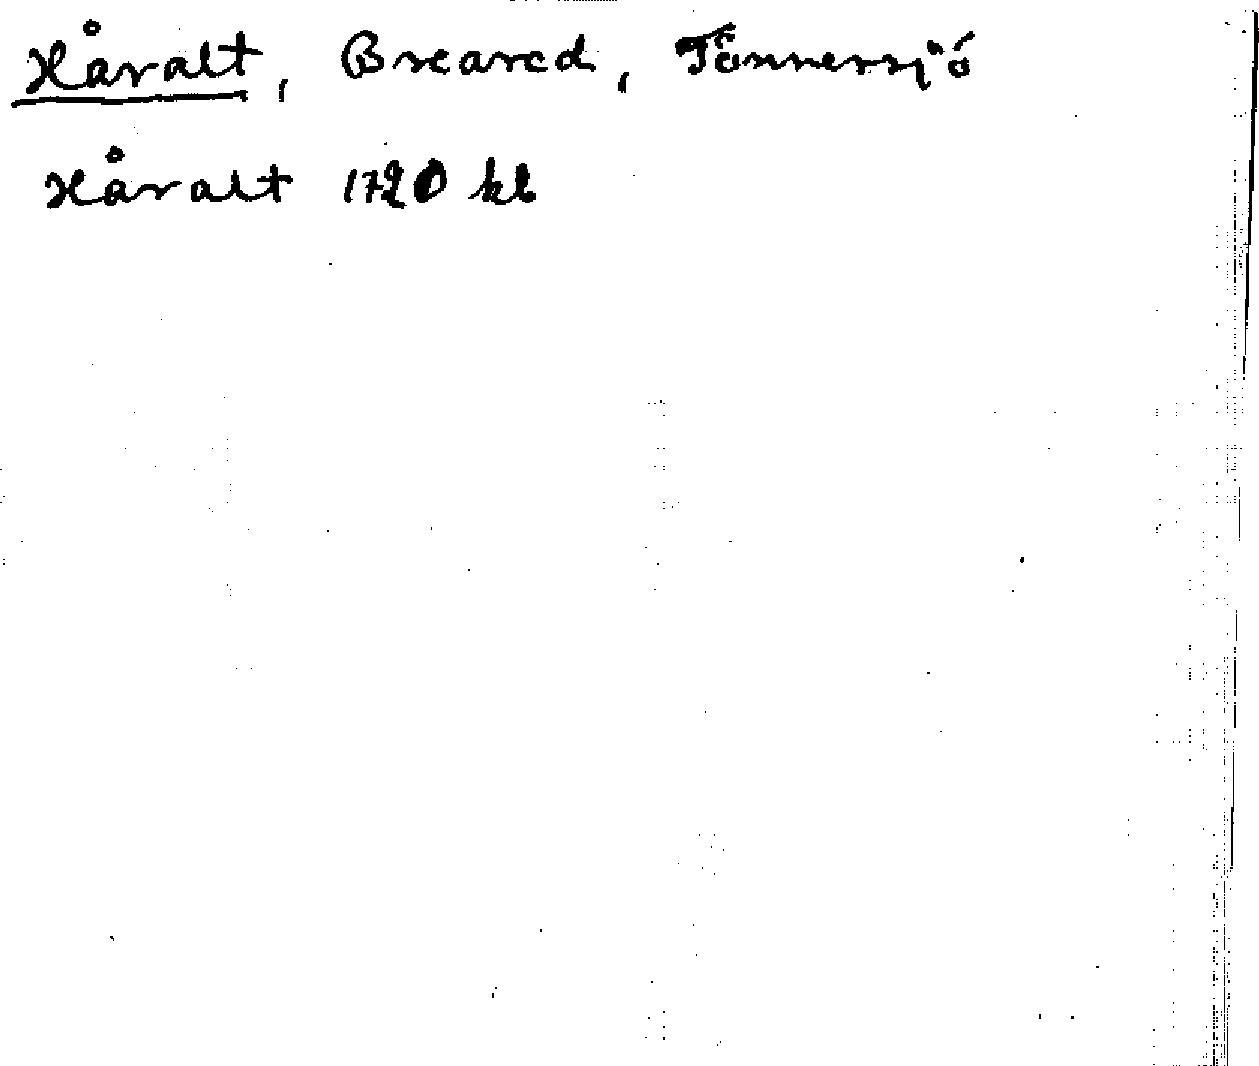 Håralt, Breared, Tönnersjö
Håralt 1720 kb